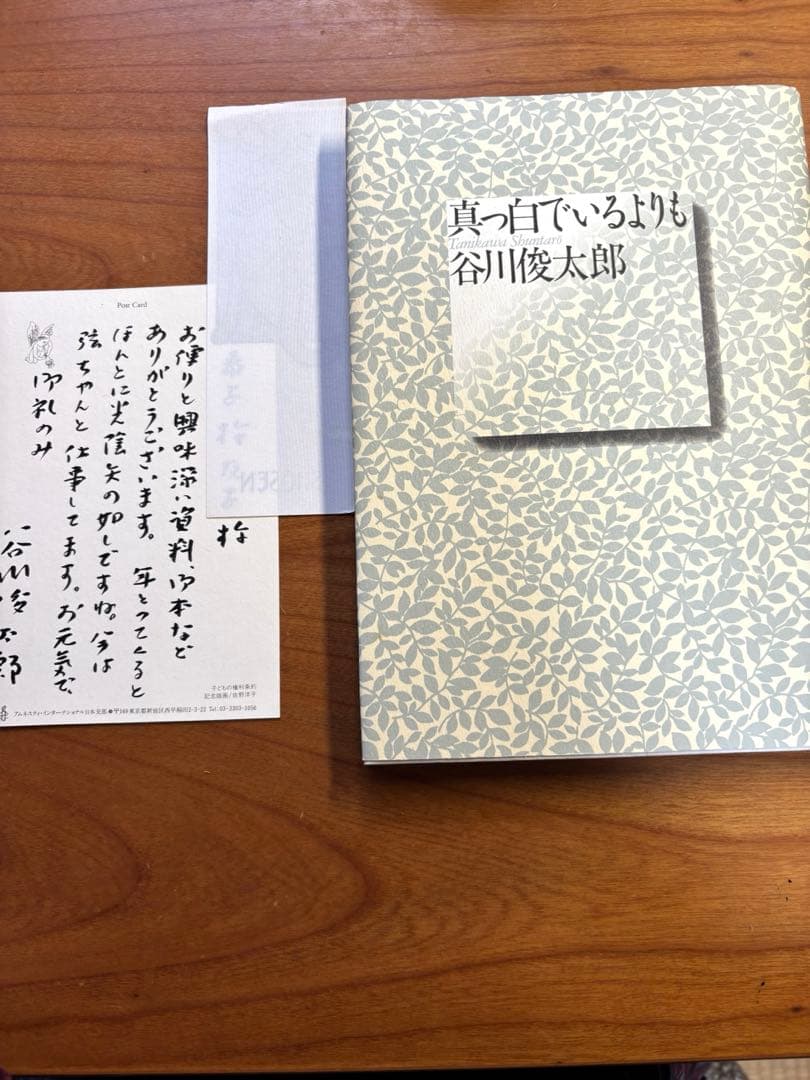 真っ白でいるよりも
Tanikawa Shuntarō
谷川俊太郎
Post Card
お便りと興味深い資料、御本など
ありがとうございます。年とってくると
ほんとに光陰矢の如しですね。今は
弦ちゃんと仕事してます。お元気で、
御礼のみ
谷川俊太郎
子どもの権利条約
記念版画/佐野洋子
アムネスティ・インターナショナル日本支部●〒169 東京都新宿区西早稲田2-3-22 Tel.03-3203-1050